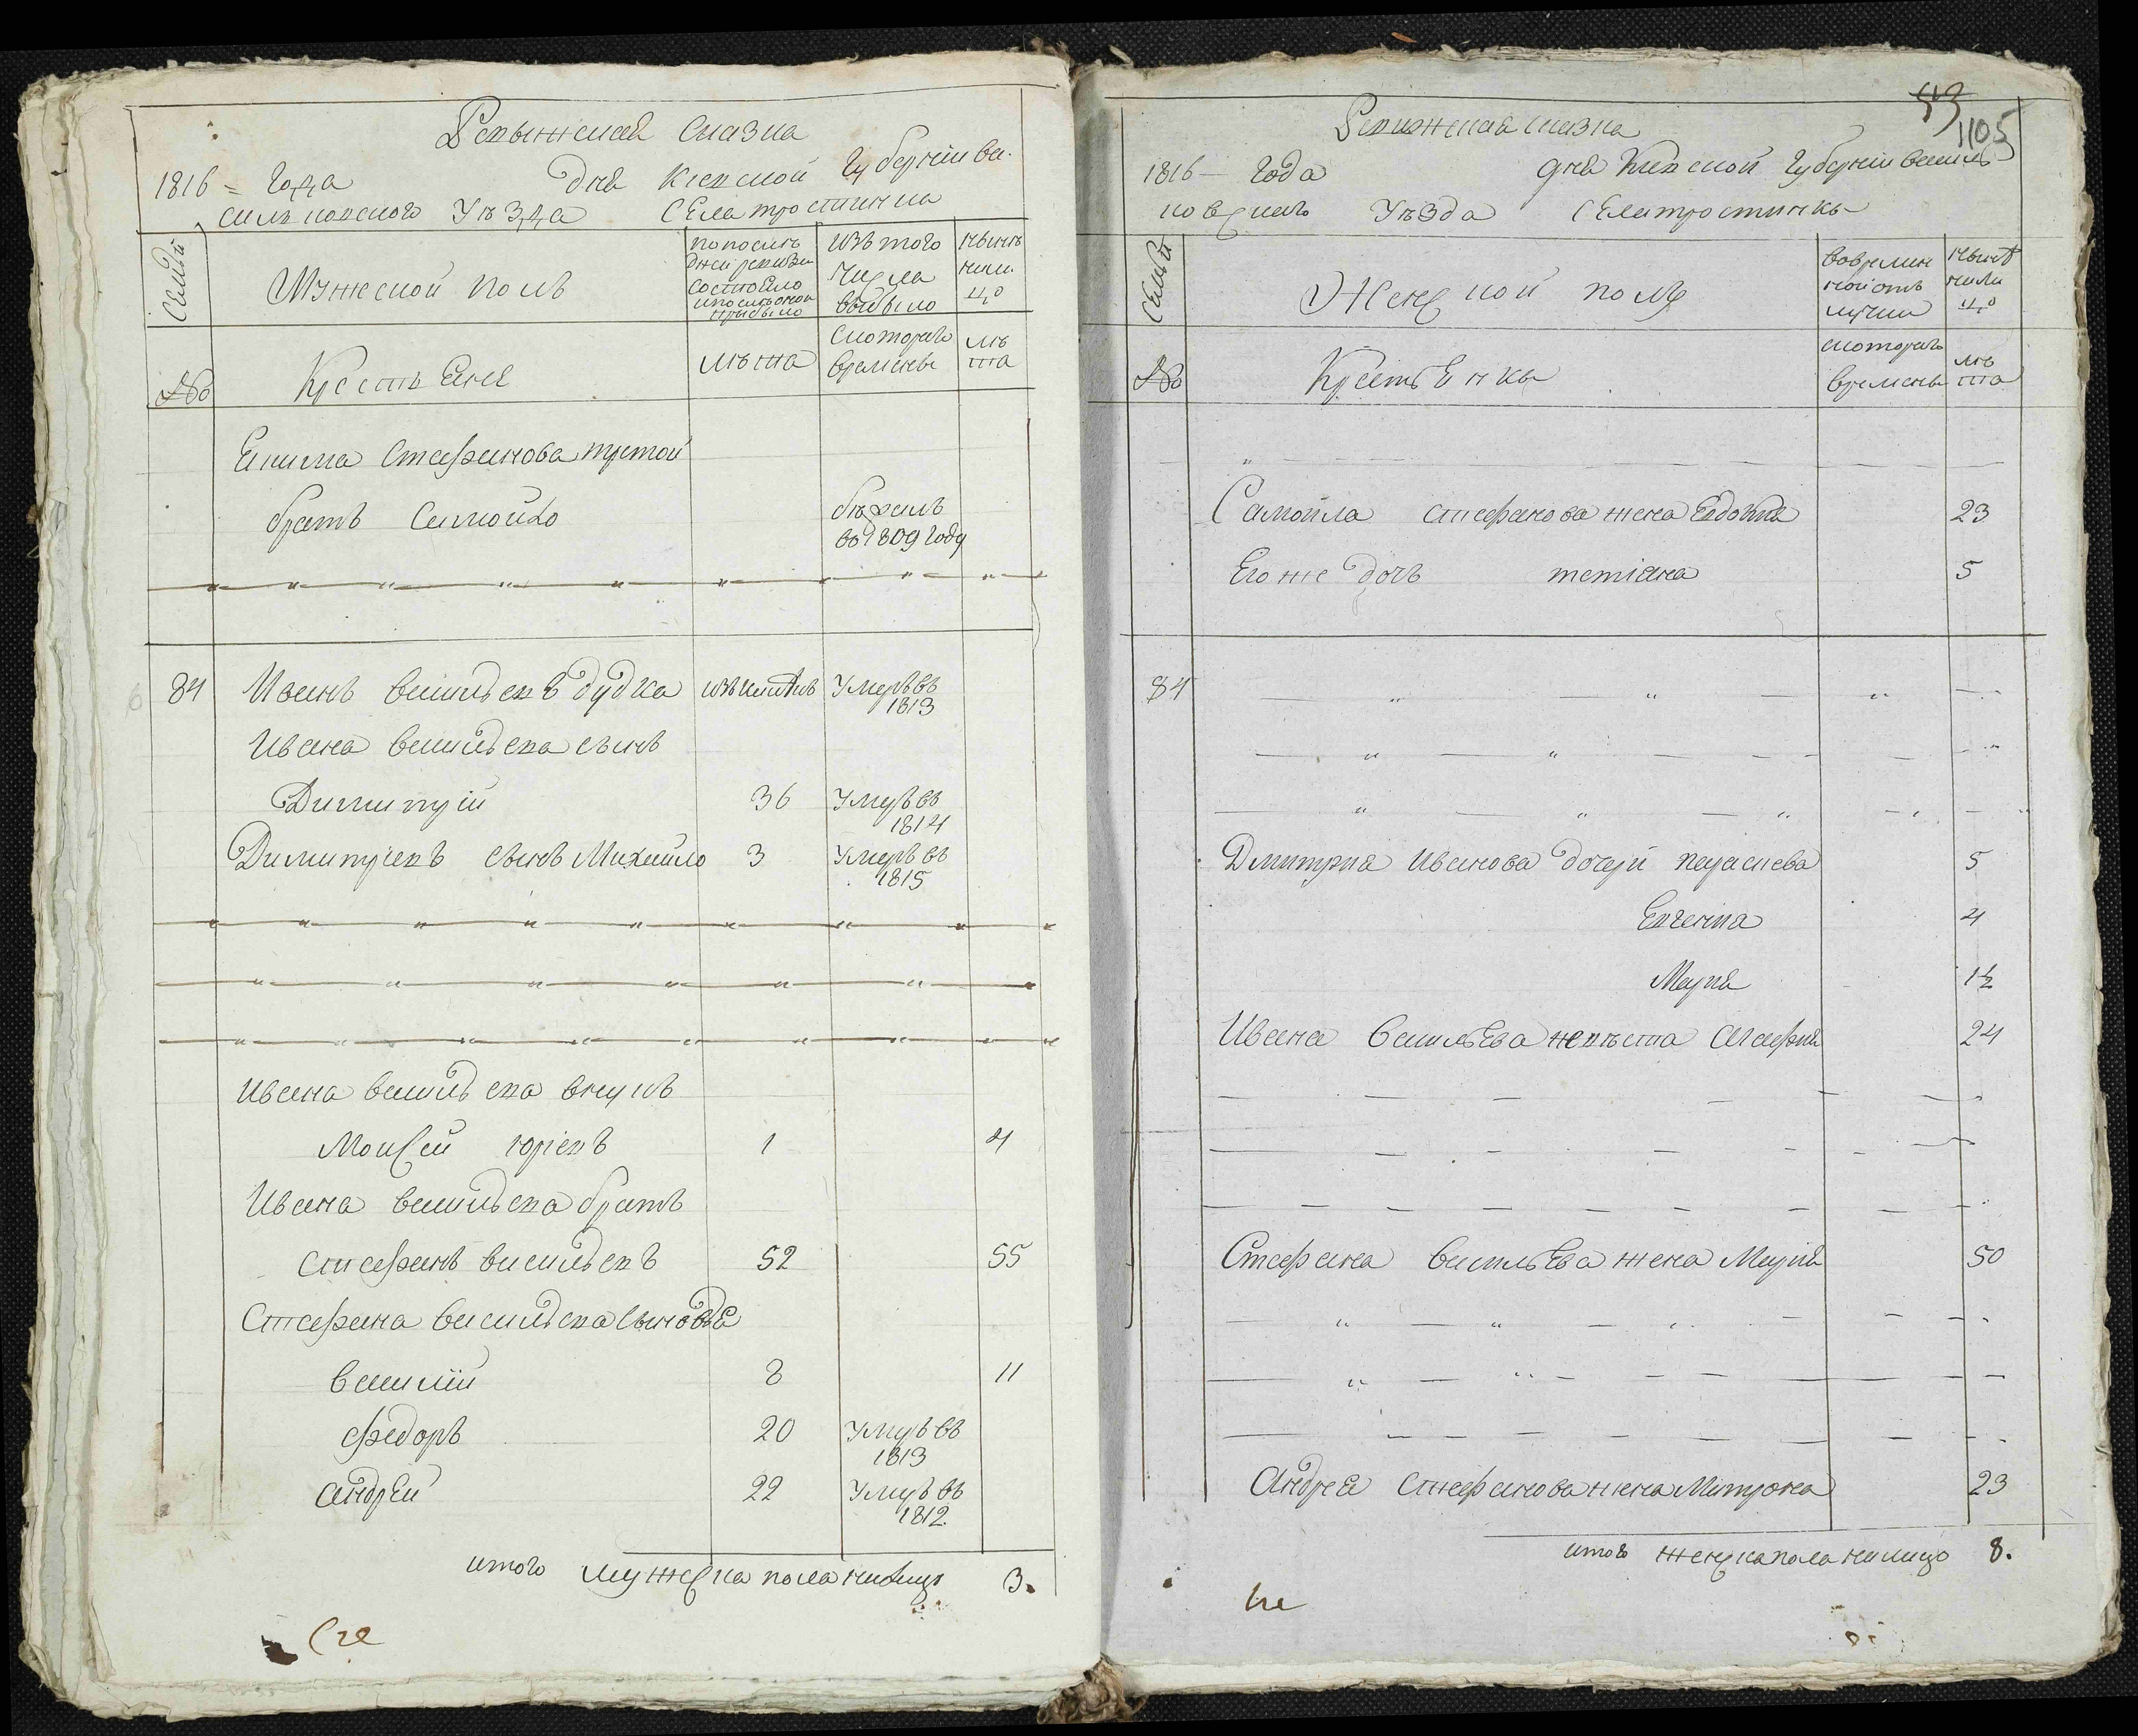 Ревижская сказка
1816 = года дня Киевской губернии Ва-
сильковского уѣзда села тростинки
Семьи
Мужеской полъ
попослѣдней ревизии состояло и послѣ оной прибыло
изъ того числа выбыло
нынѣ на лицо
№
Крестьяне
лѣта
с котораго времени
лѣта
Екима Стефанова третой
братъ Самойло бѣжалъ
въ 1809 году
84 Иванъ васильевъ дудка умеръ въ
1813
Ивана васильева сынъ
Димитрій 36 умеръ въ
1814
Димитріевъ сынъ Михайло 3 умеръ въ
1815
Ивана васильева внукъ
Моисей юріевъ 1 4
Ивана васильева братъ
Стефанъ васильевъ 52 55
Стефана васильева сыновья
василій 8 11
федоръ 20 умеръ въ
1813
андрей 22 умеръ въ
1812.
итого мужеска пола налицо 3.
53
1105
Ревижская сказка
1816 — года дня Киевской губерніи василь-
ковскаго уѣзда села тростинки
Семьи
Женской полъ
во временной отлучки
нынѣ на лицо
№
Крестьянки
с котораго времени
лѣта
Самойла стефанова жена Евдокия 23
Его же дочь тетіана 5
84
Дмитрия Иванова дочери параскева 5
Евгения 4
Мария 1½
Ивана васильева невѣста Агафия 24
Стефана васильева жена Мария 50
Андрея Стефанова жена Митрона 23
итого женска пола налицо 8.